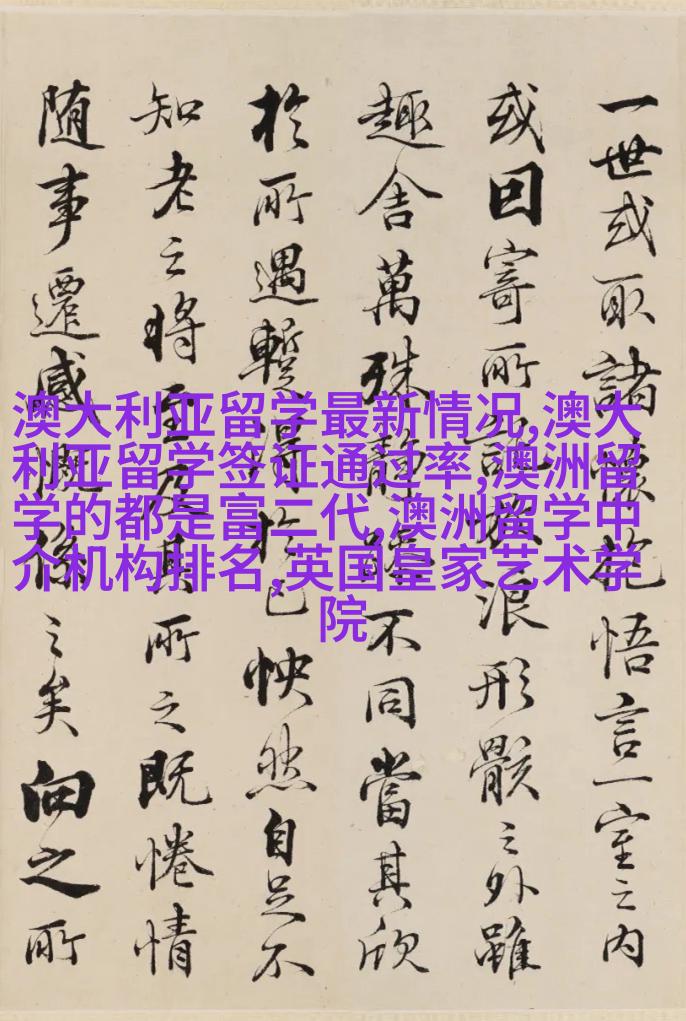 一世或取諸懷抱悟言一室之内
或因寄所託放浪形骸之外雖
趣舍萬殊靜躁不同當其欣
於所遇暫得於己怏然自足不
知老之將至及其所之既惓情
随事遷感慨係之矣向之所
澳大利亚留学最新情况,澳大
利亚留学签证通过率,澳洲留
学的都是富二代,澳洲留学中
介机构排名,英国皇家艺术学
院